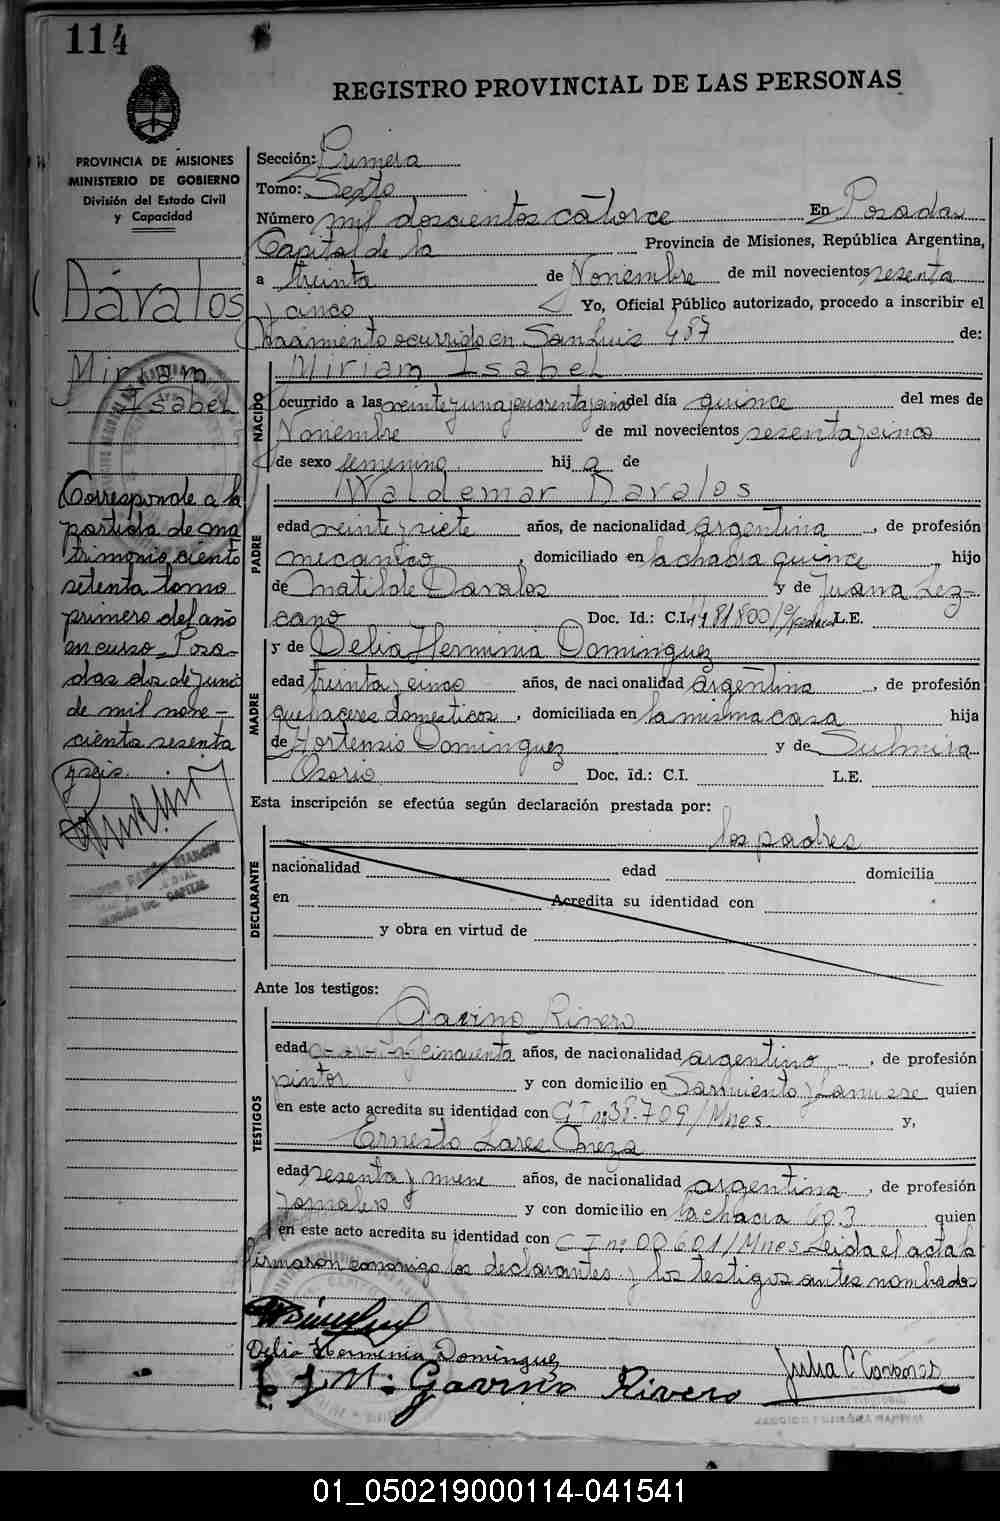 114
REGISTRO PROVINCIAL DE LAS PERSONAS
PROVINCIA DE MISIONES
MINISTERIO DE GOBIERNO
División del Estado Civil
y Capacidad
Dávalos
Miriam
Isabel
Corresponde a la
partida de ma
trimonio ciento
setenta tomo
primero del año
en curso. Posa-
das dos de junio
de mil nove-
cientos sesenta
y seis.
CAPITAL
Sección: Primera
Tomo: Sexto
Número mil doscientos catorce En Posadas
Capital de la Provincia de Misiones, República Argentina,
a treinta de Noviembre de mil novecientos sesenta
y cinco Yo, Oficial Público autorizado, procedo a inscribir el
Nacimiento ocurrido en San Luis 487 de:
NACIDO
Miriam Isabel
ocurrido a las veinte y una y cuarenta y cinco del día quince del mes de
Noviembre de mil novecientos sesenta y cinco
de sexo femenino hij a de
PADRE
Waldemar Davalos
edad veinte y siete años, de nacionalidad argentina, de profesión
mecanico, domiciliado en la chacra quince hijo
de Matilde Davalos y de Juana Lez-
cano Doc. Id.: C.I. L.E.
MADRE
y de Delia Herminia Dominguez
edad treinta y cinco años, de nacionalidad argentina, de profesión
quehaceres domesticos, domiciliada en la misma casa hija
de Hortensio Dominguez y de
Osorio Doc. Id.: C.I. L.E.
Esta inscripción se efectúa según declaración prestada por:
DECLARANTE
los padres
nacionalidad edad domicilia
en Acredita su identidad con
y obra en virtud de
Ante los testigos:
TESTIGOS
Gavino Rivero
edad cincuenta años, de nacionalidad argentino, de profesión
pintor y con domicilio en Sarmiento y Lanusse quien
en este acto acredita su identidad con C I nº 38.709/Mnes. y,
Ernesto
edad sesenta y nueve años, de nacionalidad argentina, de profesión
jornalero y con domicilio en la chacra 603 quien
en este acto acredita su identidad con C I nº 00601/Mnes Leida el acta la
firmaron conmigo los declarantes y los testigos antes nombrados
Delia Herminia Dominguez
Gavino Rivero
Julia C
01_050219000114-041541